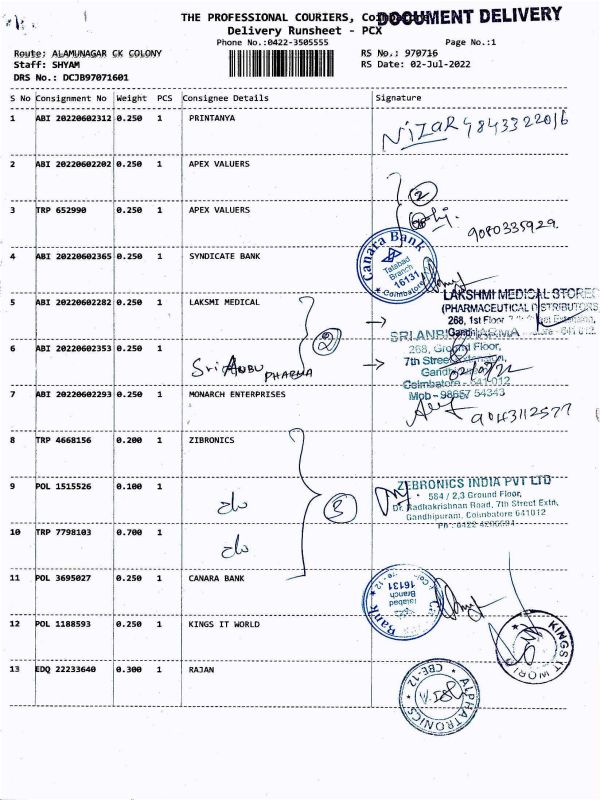 THE PROFESSIONAL COURIERS,
DOCUMENT DELIVERY
Delivery Runsheet - PCX
Phone No.:0422-3505555
Page No.:1
Route: ALAMUNAGAR CK COLONY
RS No.: 970716
Staff: SHYAM
RS Date: 02-Jul-2022
DRS No.: DCJB97071601
S No Consignment No Weight PCS Consignee Details Signature
1 ABI 20220602312 0.250 1 PRINTANYA
NIZAR 9843322016
2 ABI 20220602202 0.250 1 APEX VALUERS
2
3 TRP 652990 0.250 1 APEX VALUERS
9080335929.
4 ABI 20220602365 0.250 1 SYNDICATE BANK
Canara Bank
Tatabad
Branch
16131
Coimbatore
5 ABI 20220602282 0.250 1 LAKSMI MEDICAL
LAKSHMI MEDICAL STORES
(PHARMACEUTICAL DISTRIBUTORS
268, 1st Floor
2
SRI ANBU PHARMA
6 ABI 20220602353 0.250 1
Sri ANBU PHARMA
268, Ground Floor,
7th Street Extension,
Coimbatore - 641 012
Mob - 98657 54343
02/07/22
7 ABI 20220602293 0.250 1 MONARCH ENTERPRISES
9043112577
8 TRP 4668156 0.200 1 ZIBRONICS
9 POL 1515526 0.100 1
do
3
ZEBRONICS INDIA PVT LTD
584 / 2,3 Ground Floor,
Dr. Radhakrishnan Road, 7th Street Extn,
Gandhipuram, Coimbatore 641012
10 TRP 7798103 0.700 1
do
11 POL 3695027 0.250 1 CANARA BANK
Tatabad
Branch
16131
Bank
12 POL 1188593 0.250 1 KINGS IT WORLD
KINGS IT WORLD
13 EDQ 22233640 0.300 1 RAJAN
CBE-12
ALPHATRONICS